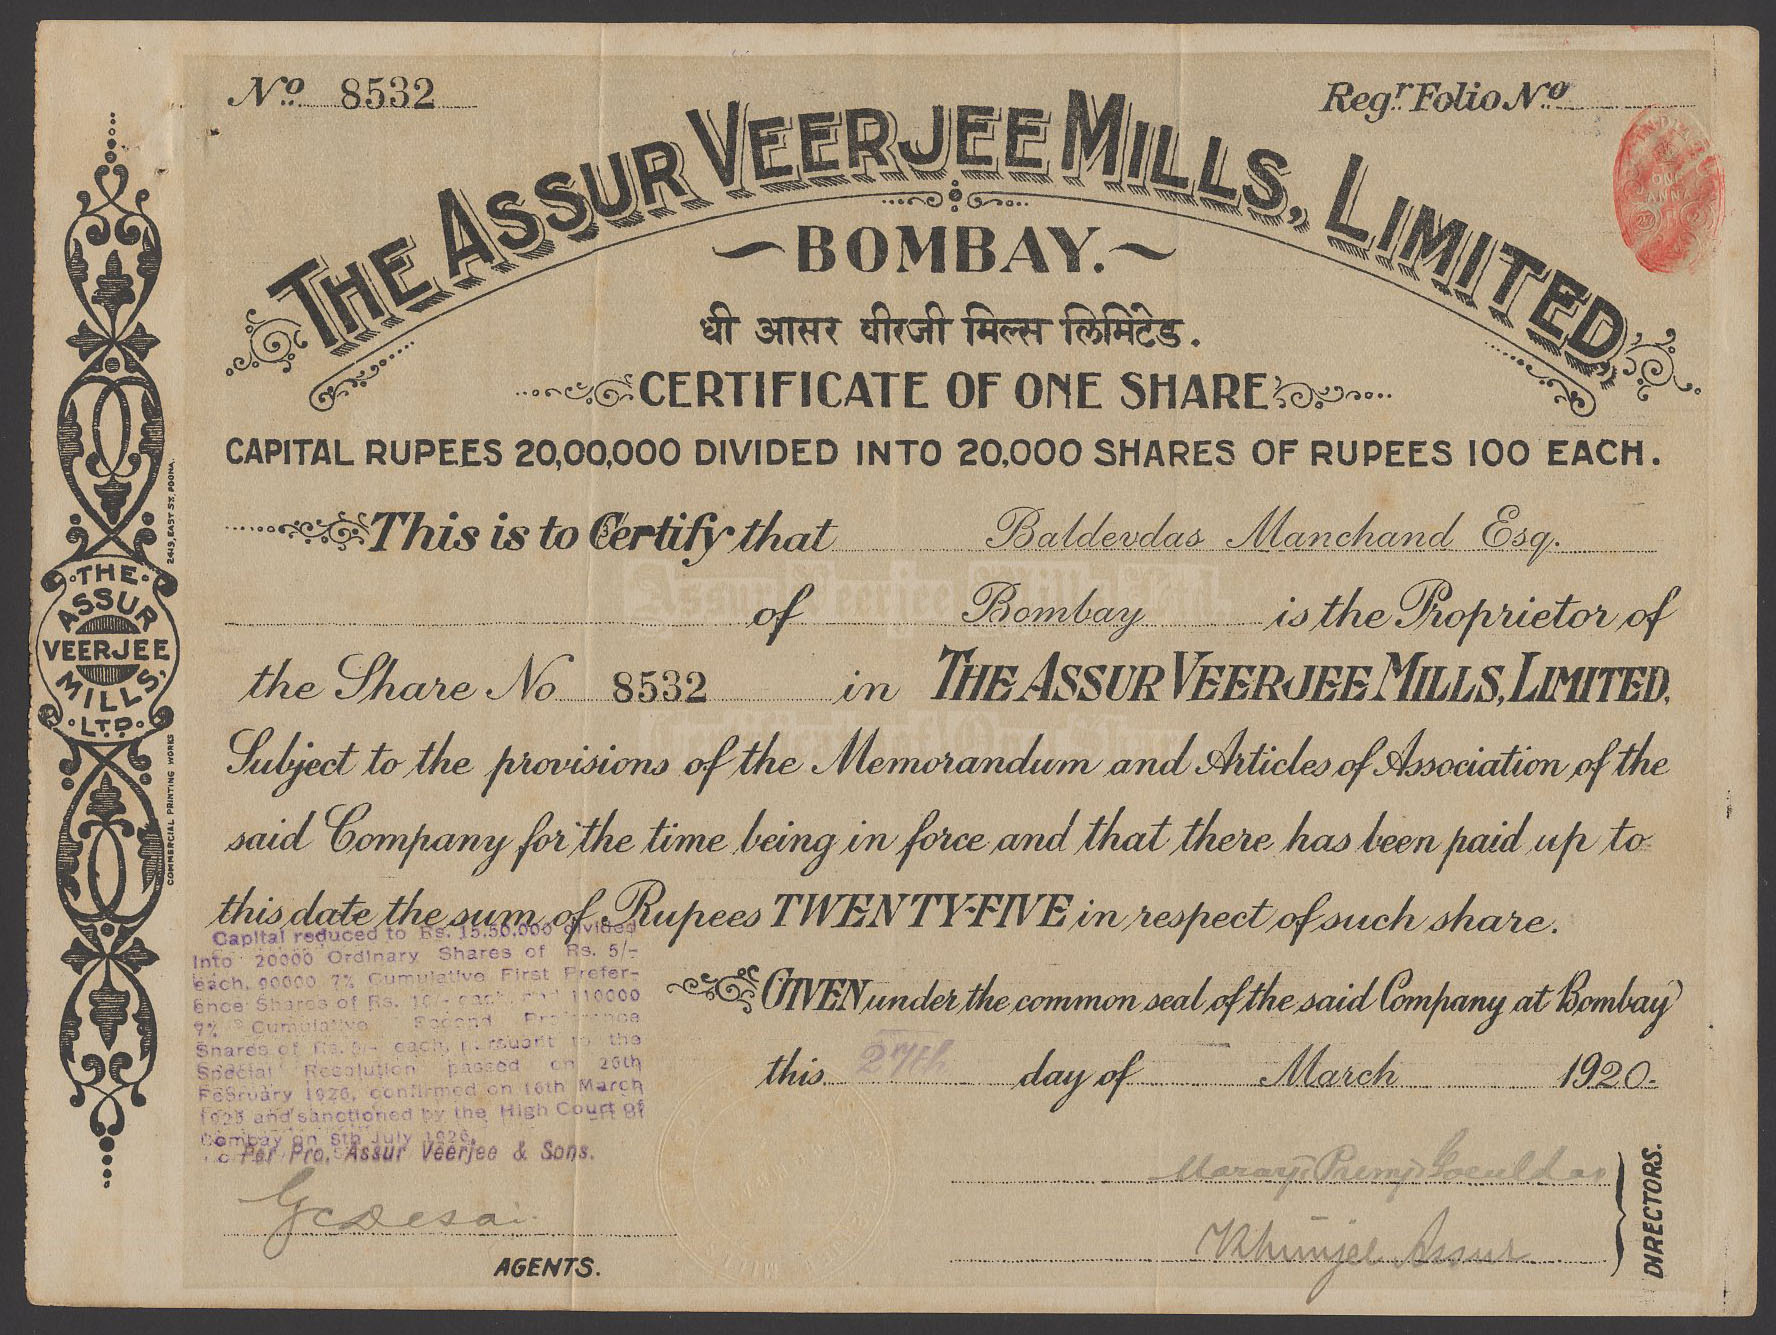 No. 8532
Regr. Folio No.
THE ASSUR VEERJEE MILLS, LIMITED,
BOMBAY.
धी आसर वीरजी मिल्स लिमिटेड.
CERTIFICATE OF ONE SHARE
CAPITAL RUPEES 20,00,000 DIVIDED INTO 20,000 SHARES OF RUPEES 100 EACH.
This is to Certify that Baldevdas Manchand Esq.
of Bombay is the Proprietor of
the Share No 8532 in THE ASSUR VEERJEE MILLS, LIMITED,
Subject to the provisions of the Memorandum and Articles of Association of the
said Company for the time being in force and that there has been paid up to
this date the sum of Rupees TWENTY-FIVE in respect of such share.
GIVEN under the common seal of the said Company at Bombay
this 27th day of March 1920.
Capital reduced to Rs. 15.50.000 divided
into 20000 Ordinary Shares of Rs. 5/-
each, 90000 7% Cumulative First Prefer-
ence Shares of Rs. 10/- each, and 110000
7% Cumulative Second Preference
Shares of Rs. 5/- each, pursuant to the
Special Resolution passed on 26th
February 1926, confirmed on 16th March
1926 and sanctioned by the High Court of
Bombay on 8th July 1926.
Per Pro. Assur Veerjee & Sons.
GCDesai
AGENTS.
Assur
DIRECTORS.
THE
ASSUR
VEERJEE
MILLS,
LTD.
2419, EAST ST. POONA.
COMMERCIAL PRINTING WORKS
INDIA
ONE
ANNA
Assur Veerjee Mills Ltd
Certificate of One Share